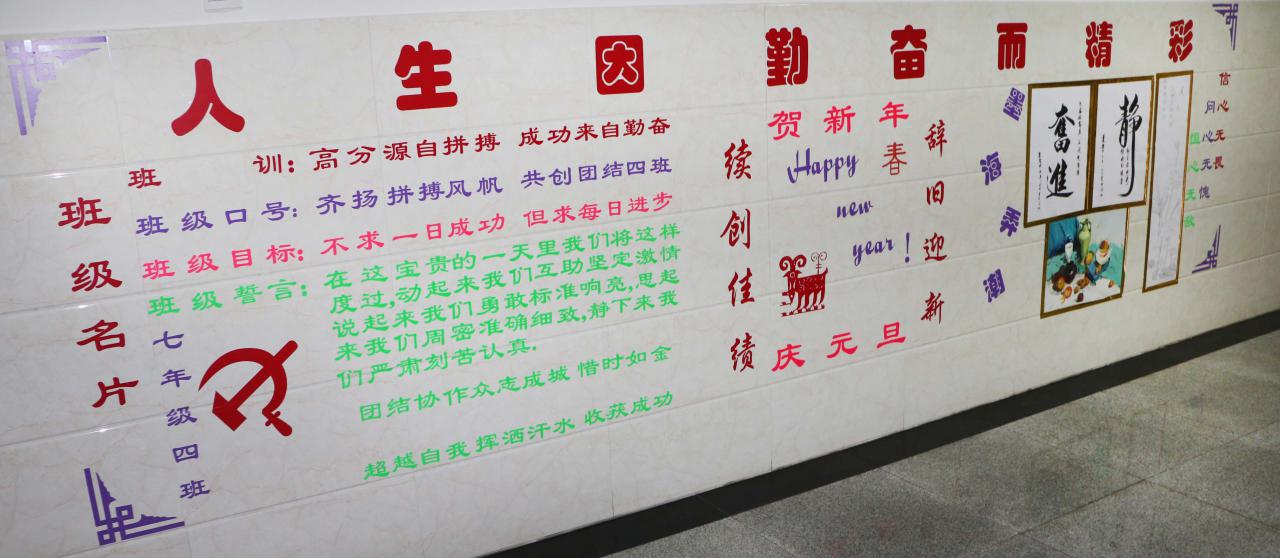 人生因勤奋而精彩
班级名片
七年级四班
班训：高分源自拼搏 成功来自勤奋
班级口号：齐扬拼搏风帆 共创团结四班
班级目标：不求一日成功 但求每日进步
班级誓言：在这宝贵的一天里我们将这样
度过,动起来我们互助坚定激情
说起来我们勇敢标准响亮,思起
来我们周密准确细致,静下来我
们严肃刻苦认真.
团结协作众志成城 惜时如金
超越自我挥洒汗水 收获成功
续创佳绩
贺新年
Happy
春
new
year!
庆元旦
辞旧迎新
墨海秀潮
奋进
静
信心无畏
问心无愧
恒心无敌